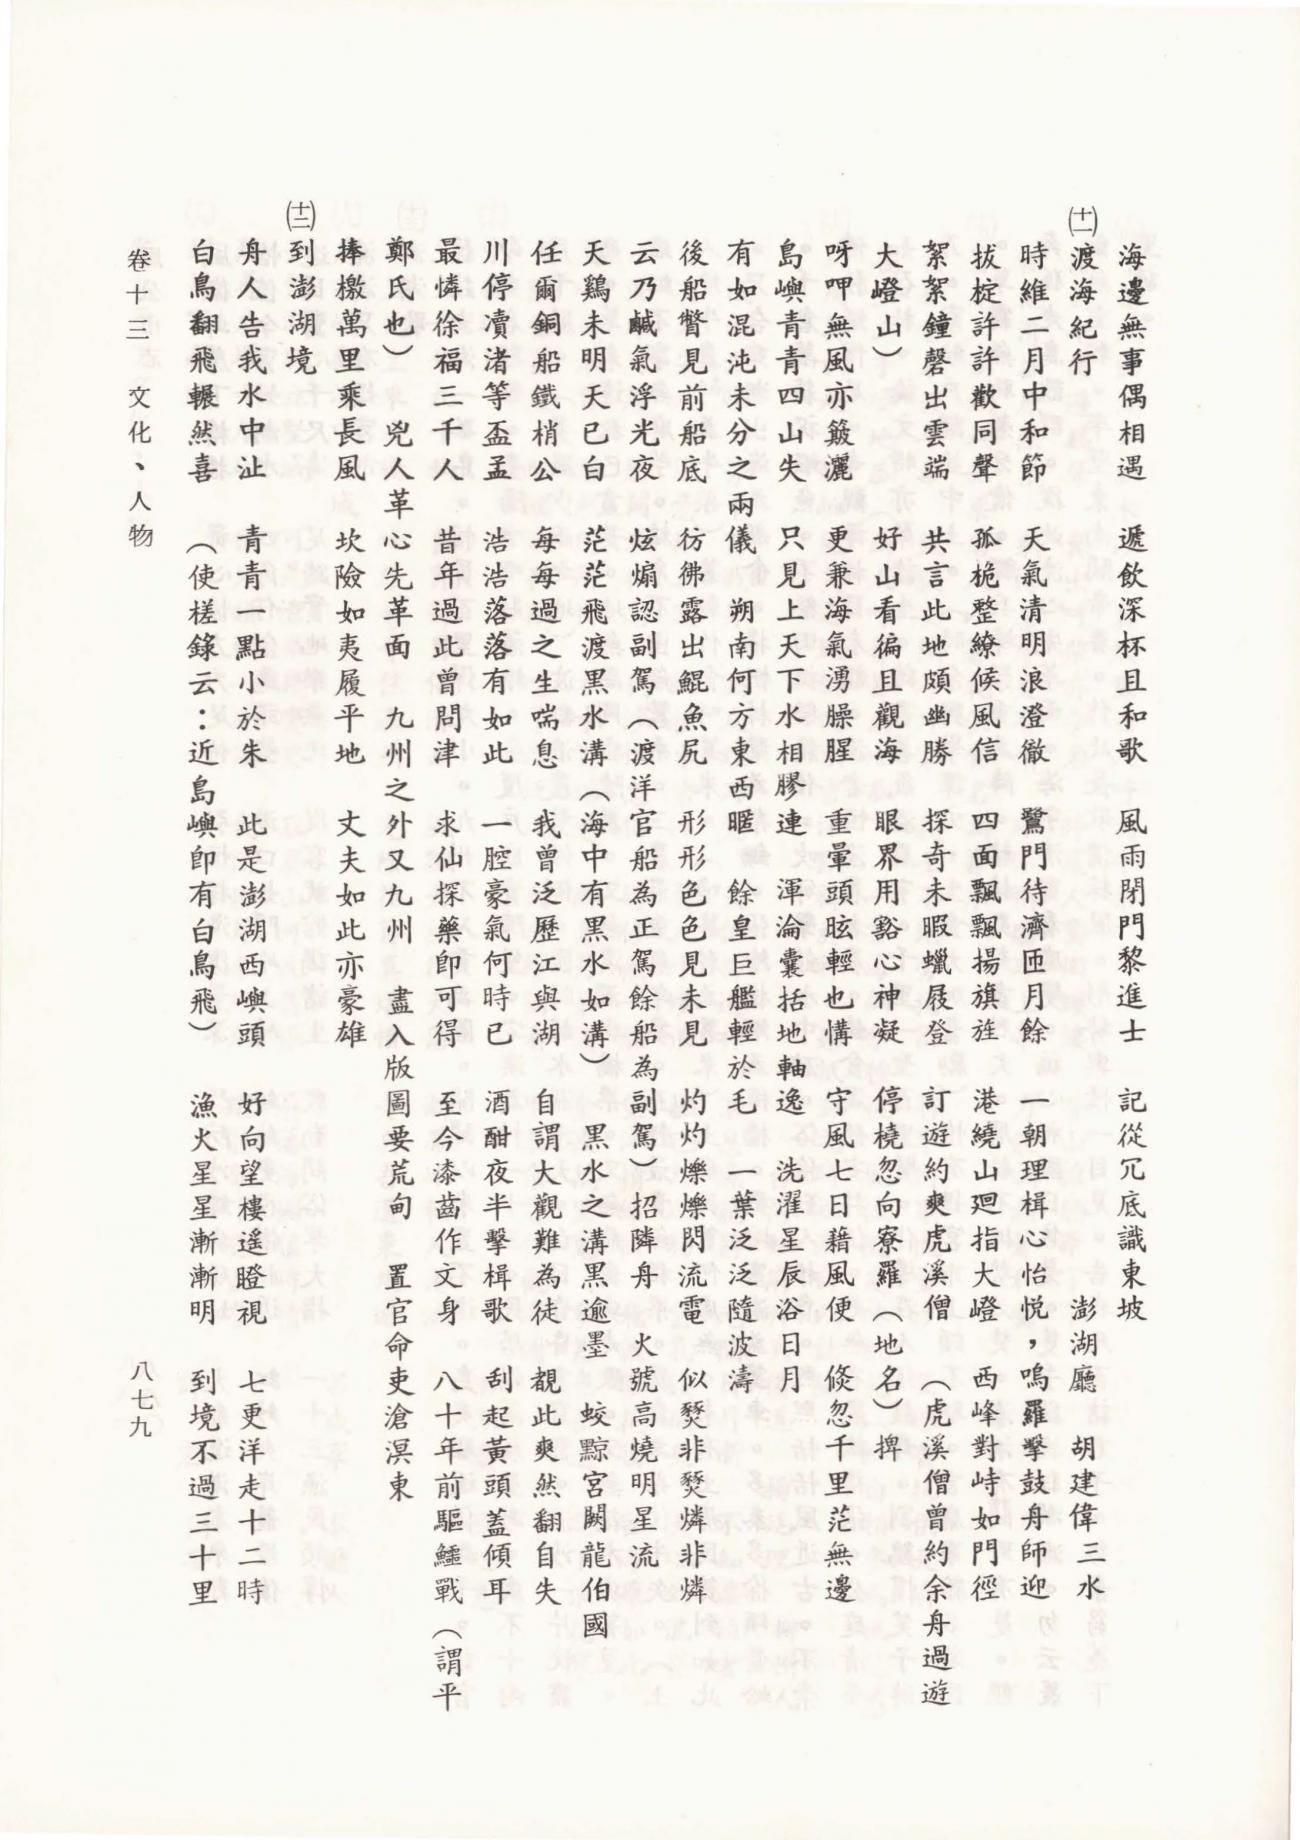 海邊無事偶相遇　遞飲深杯且和歌　風雨閉門黎進士　記從冗底識東坡
㈩渡海紀行　澎湖廳　胡建偉三水
時維二月中和節　天氣清明浪澄徹　鷺門待濟匝月餘　一朝理楫心怡悅，鳴羅擊鼓舟師迎
拔椗許許歡同聲　孤桅整繚候風信　四面飄飄揚旗旌　港繞山迴指大嶝　西峰對峙如門徑
絮絮鐘磬出雲端　共言此地頗幽勝　探奇未暇蠟屐登　訂遊約爽虎溪僧　（虎溪僧曾約余舟過遊
大嶝山）　好山看徧且觀海　眼界用豁心神凝　停橈忽向寮羅（地名）捭
呀呷無風亦簸灑　更兼海氣湧臊腥　重暈頭眩輕也慲　守風七日藉風便　倏忽千里茫無邊
島嶼青青四山失　只見上天下水相膠連　渾淪囊括地軸逸　洗濯星辰浴日月
有如混沌未分之兩儀　朔南何方東西暱　餘皇巨艦輕於毛　一葉泛泛隨波濤
後船瞥見前船底　彷彿露出鯤魚尻　形形色色見未見　灼灼爍爍閃流電　似燹非燹燐非燐
云乃鹹氣浮光夜　炫煽認副駕（渡洋官船為正駕餘船為副駕）招隣舟　火號高燒明星流
天鷄未明天已白　茫茫飛渡黑水溝（海中有黑水如溝）　黑水之溝黑逾墨　蛟黥宮闕龍伯國
任爾銅船鐵梢公　每每過之生喘息　我曾泛歷江與湖　自謂大觀難為徒　覩此爽然翻自失
川停瀆渚等盃盂　浩浩落落有如此　一腔豪氣何時已　酒酣夜半擊楫歌　刮起黃頭蓋傾耳
最憐徐福三千人　昔年過此曾問津　求仙探藥卽可得　至今漆齒作文身　八十年前驅鱷戰（謂平
鄭氏也）　兇人革心先革面　九州之外又九州　盡入版圖要荒甸　置官命吏滄溟東
捧檄萬里乘長風　坎險如夷履平地　丈夫如此亦豪雄
㈪到澎湖境
舟人告我水中沚　青青一點小於朱　此是澎湖西嶼頭　好向望樓遙瞪視　七更洋走十二時
白鳥翻飛囅然喜　（使槎錄云：近島嶼卽有白鳥飛）　漁火星星漸漸明　到境不過三十里
卷十三　文化、人物
八七九